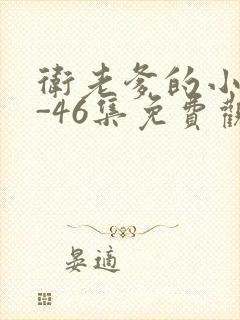 衛老爹的小
-46集免費觀
晏適